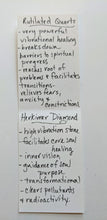 Rutilated Quartz
- very powerful
vibrational healing
- breaks down
barriers to spiritual
progress
- reaches root of
problems & facilitates
transitions.
- relieves fears,
anxiety &
constrictions.
Herkimer Diamond
- high vibration stone
- facilitates core soul
healing
- inner vision
- guidance of soul
purpose
- transformational
- clears pollutants
& radioactivity.